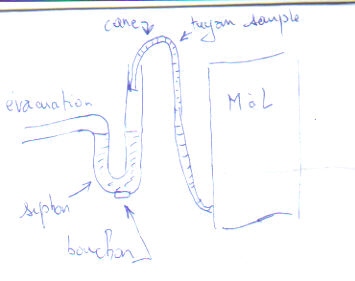 cane
tuyau souple
évacuation
M à L
siphon
bouchon